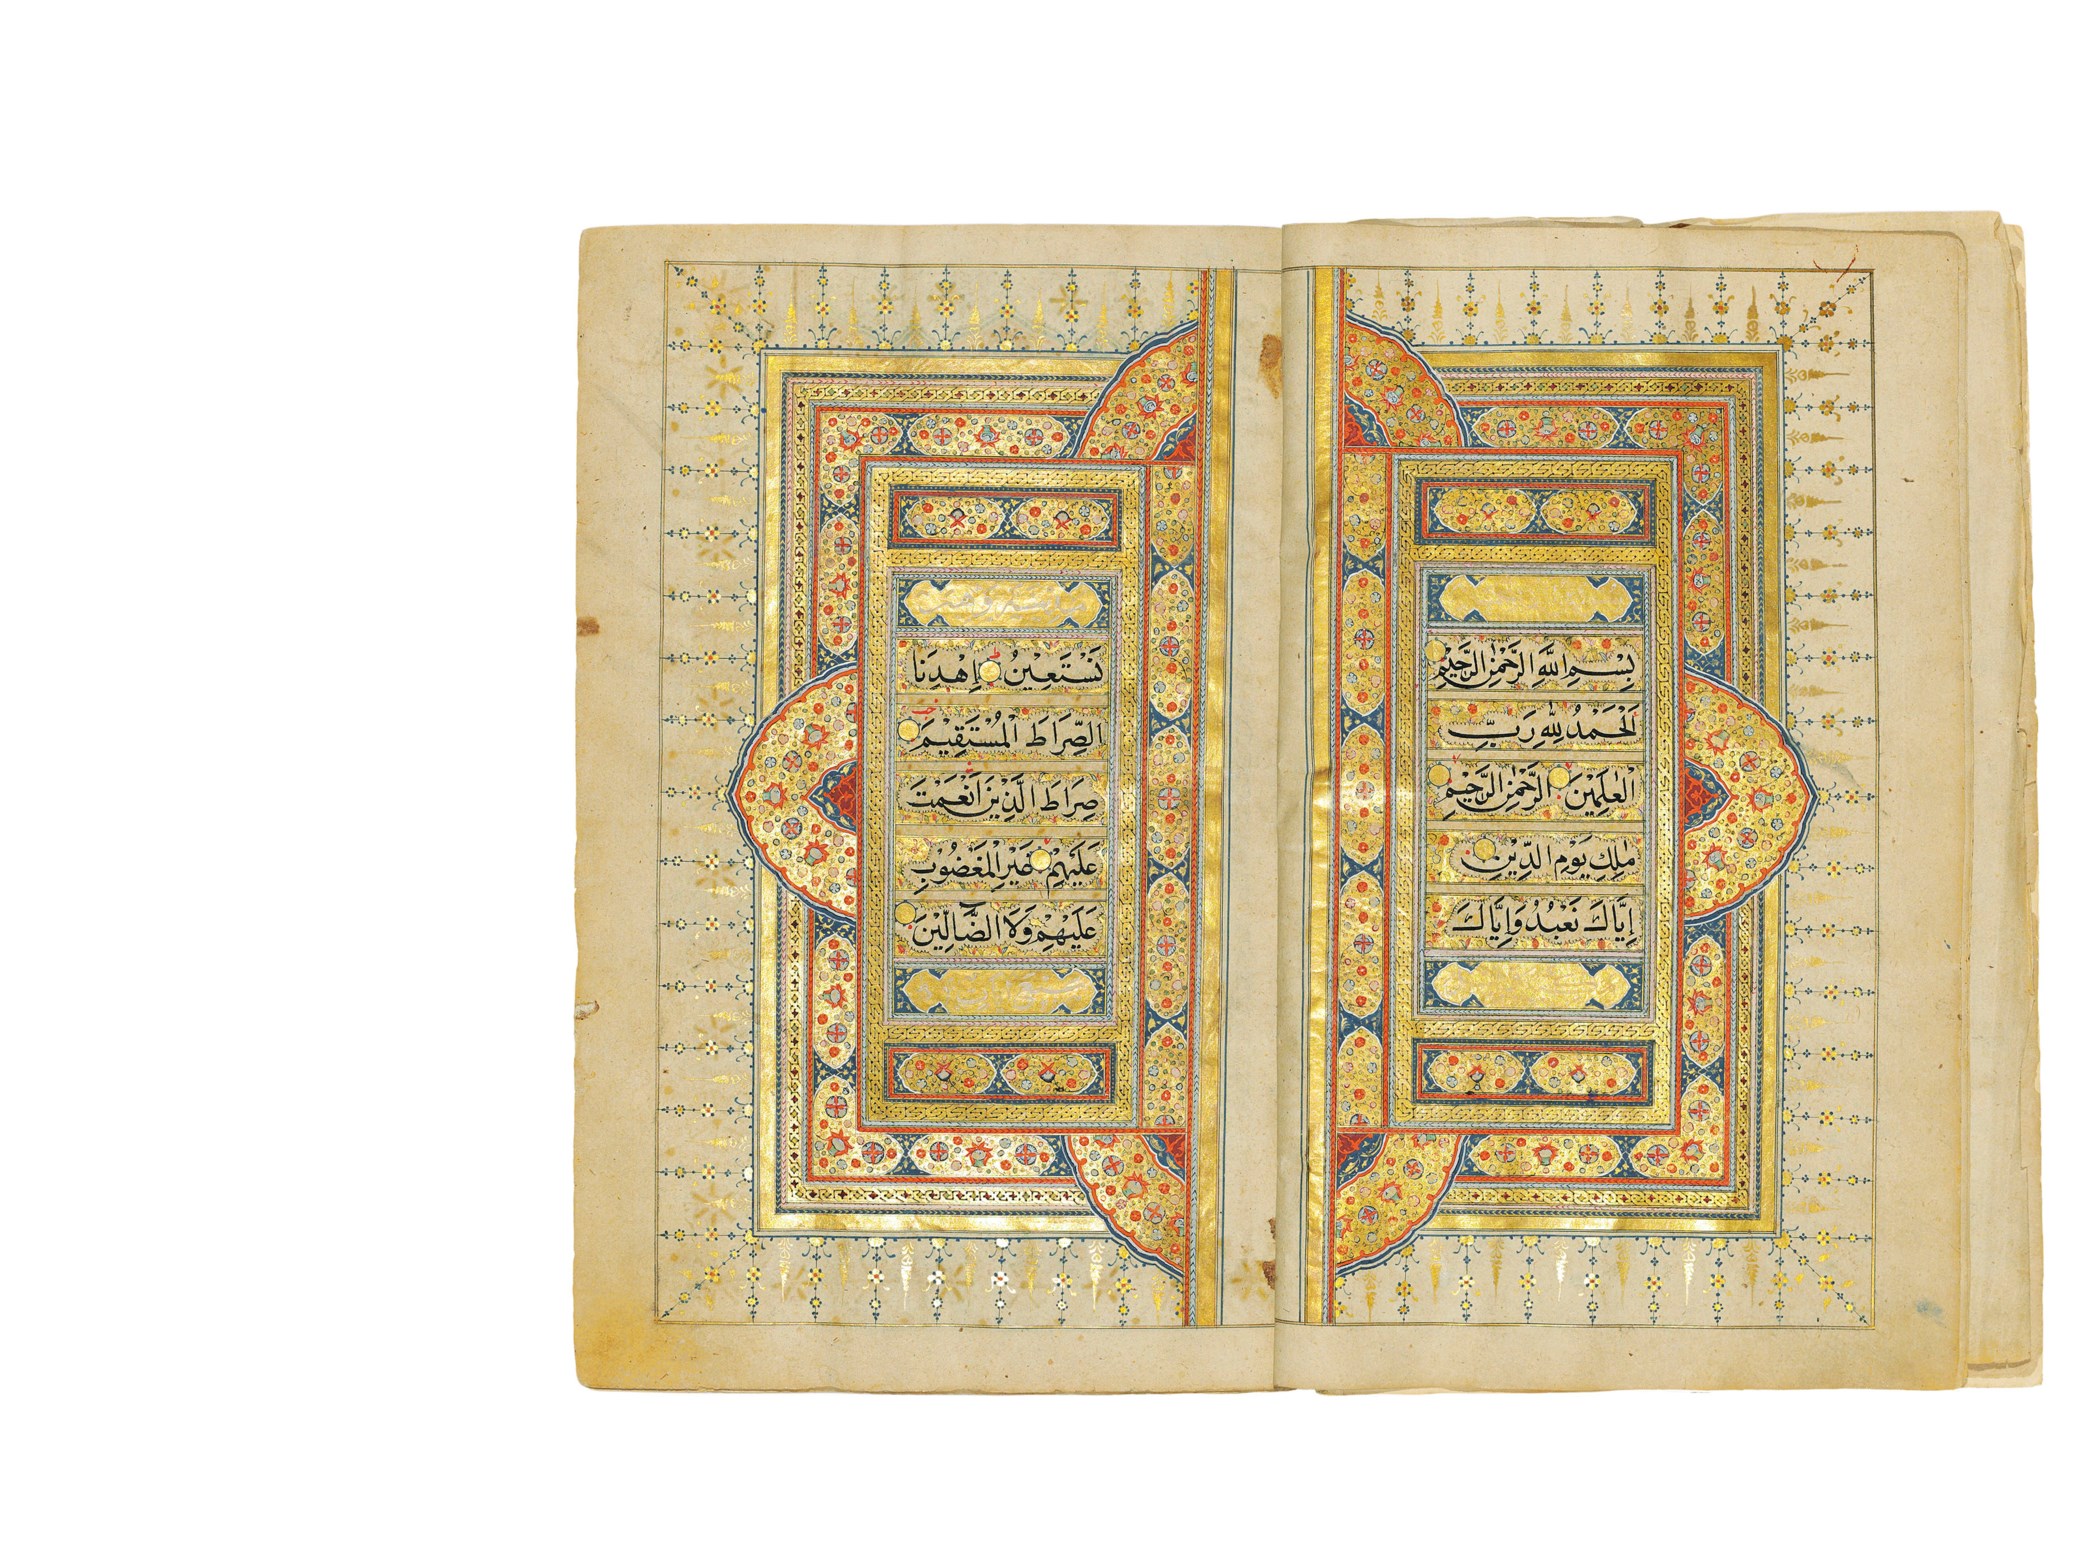 بِسْمِ اللّٰهِ الرَّحْمٰنِ الرَّحِيْمِ
اَلْحَمْدُ لِلّٰهِ رَبِّ
الْعٰلَمِيْنَ الرَّحْمٰنِ الرَّحِيْمِ
مٰلِكِ يَوْمِ الدِّيْنِ
اِيَّاكَ نَعْبُدُ وَاِيَّاكَ
نَسْتَعِيْنُ اِهْدِنَا
الصِّرَاطَ الْمُسْتَقِيْمَ
صِرَاطَ الَّذِيْنَ اَنْعَمْتَ
عَلَيْهِمْ غَيْرِ الْمَغْضُوْبِ
عَلَيْهِمْ وَلَا الضَّآلِّيْنَ